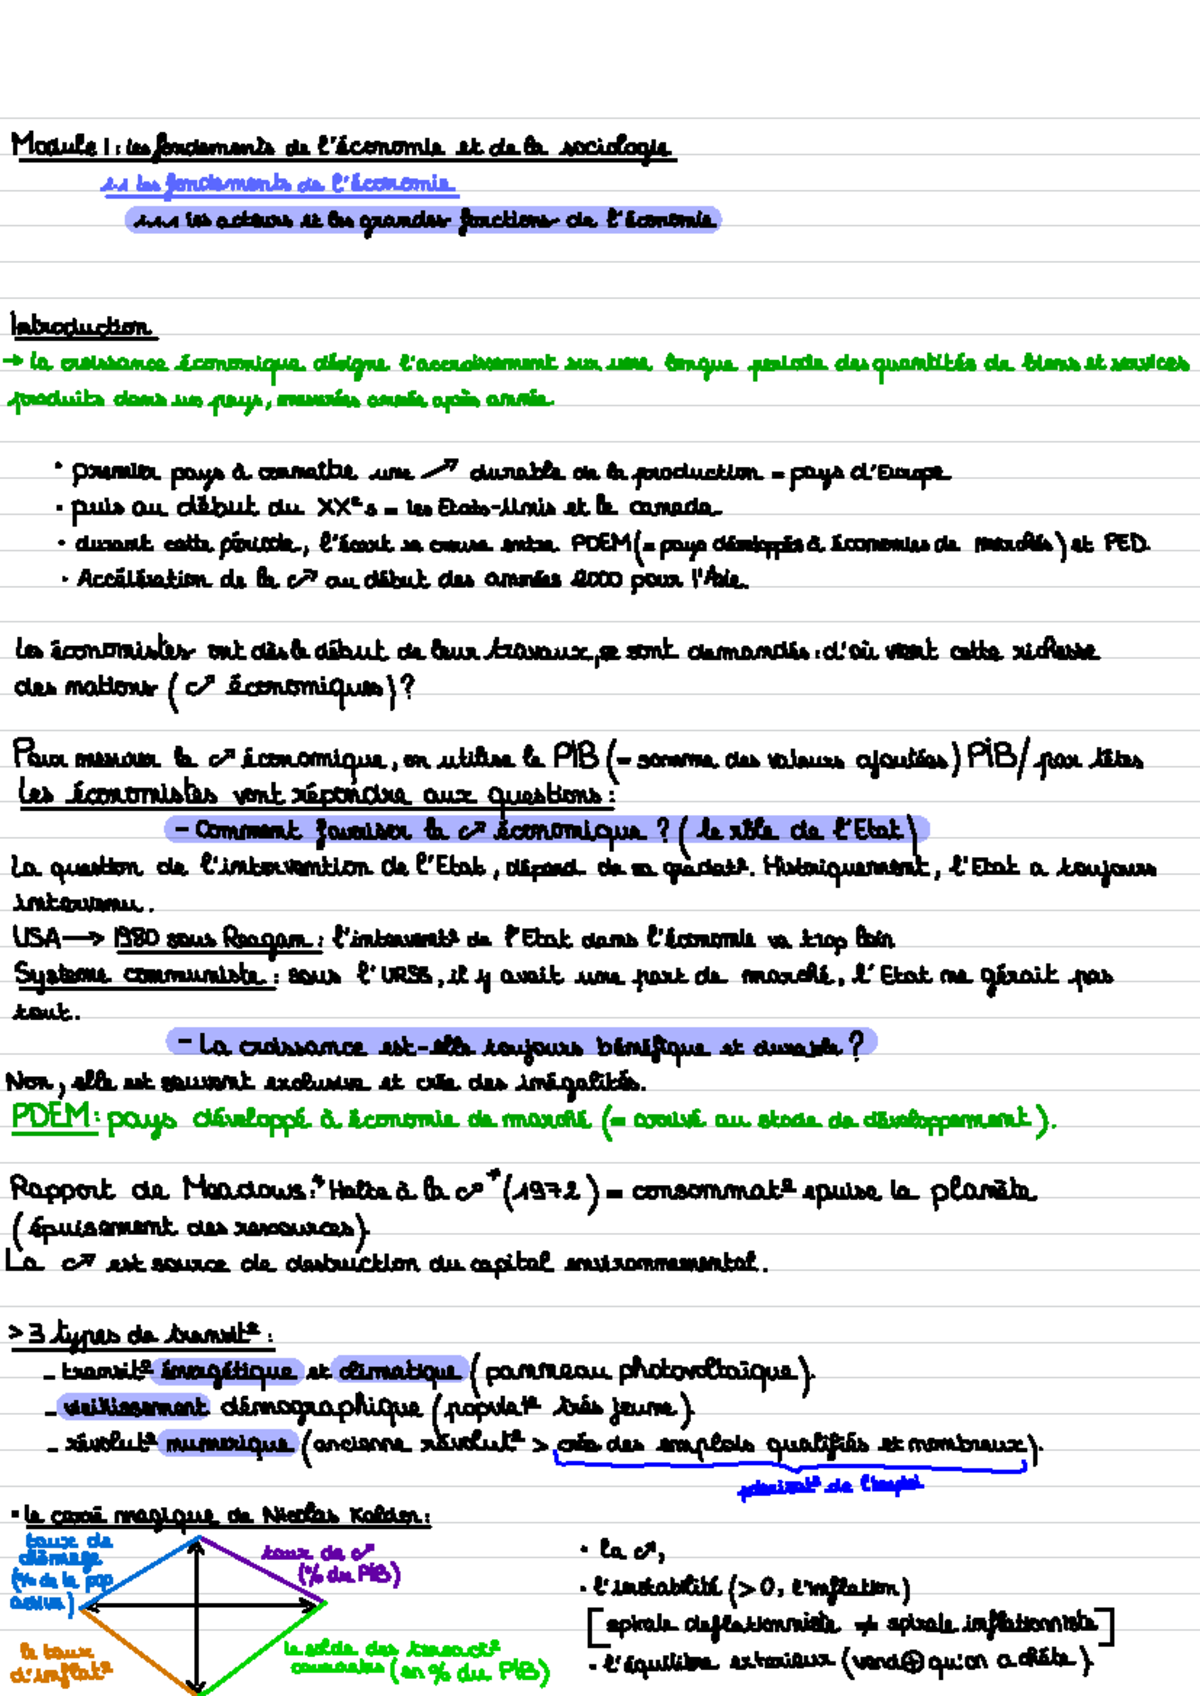 Module 1 : les fondements de l'économie et de la sociologie
1.1 les fondements de l'économie
1.1.1 les acteurs et les grandes fonctions de l'économie
Introduction
→ la croissance économique désigne l'accroissement sur une longue période des quantités de biens et services
produits dans un pays, mesurées année après année.
• premier pays à connaître une ↗ durable de la production = pays d'Europe
• puis au début du XXe s = les Etats-Unis et le canada
• durant cette période, l'écart se creuse entre PDEM (= pays développés à économies de marchés) et PED.
• Accélération de la c↗ au début des années 2000 pour l'Asie.
Les économistes ont dès le début de leur travaux, se sont demandés : d'où vient cette richesse
des nations (c↗ économiques) ?
Pour mesurer la c↗ économique, on utilise le PIB (= somme des valeurs ajoutées) PIB/ par têtes
Les économistes vont répondre aux questions :
- Comment favoriser la c↗ économique ? (le rôle de l'Etat)
La question de l'intervention de l'Etat, dépend de sa gradat°. Historiquement, l'Etat a toujours
intervenu.
USA → 1980 sous Reagan : l'intervent° de l'Etat dans l'économie va trop loin
Système communiste : sous l'URSS, il y avait une part de marché, l'Etat ne gérait pas
tout.
- La croissance est-elle toujours bénéfique et durable ?
Non, elle est souvent exclusive et crée des inégalités.
PDEM : pays développé à économie de marché (= arrivé au stade de développement).
Rapport de Meadows : "Halte à la c↗" (1972) = consommat° epuise la planète
(épuisement des ressources)
La c↗ est source de destruction du capital environnemental.
> 3 types de transit° :
- transit° énergétique et climatique (panneau photovoltaïque).
- vieillissement démographique (populat° très jeune).
- révolut° numérique (ancienne révolut° > crée des emplois qualifiés et nombreux).
polarisat° de l'emploi
• le carré magique de Nicolas Kaldor :
taux de
chômage
(% de la pop
active)
taux de c↗
(% du PIB)
le taux
d'inflat°
le solde des transact°
courantes (en % du PIB)
• la c↗,
• l'instabilité (> 0, l'inflation)
[spirale deflationniste ≠ spirale inflationniste]
• l'équilibre exterieur (vend ⊕ qu'on achète).